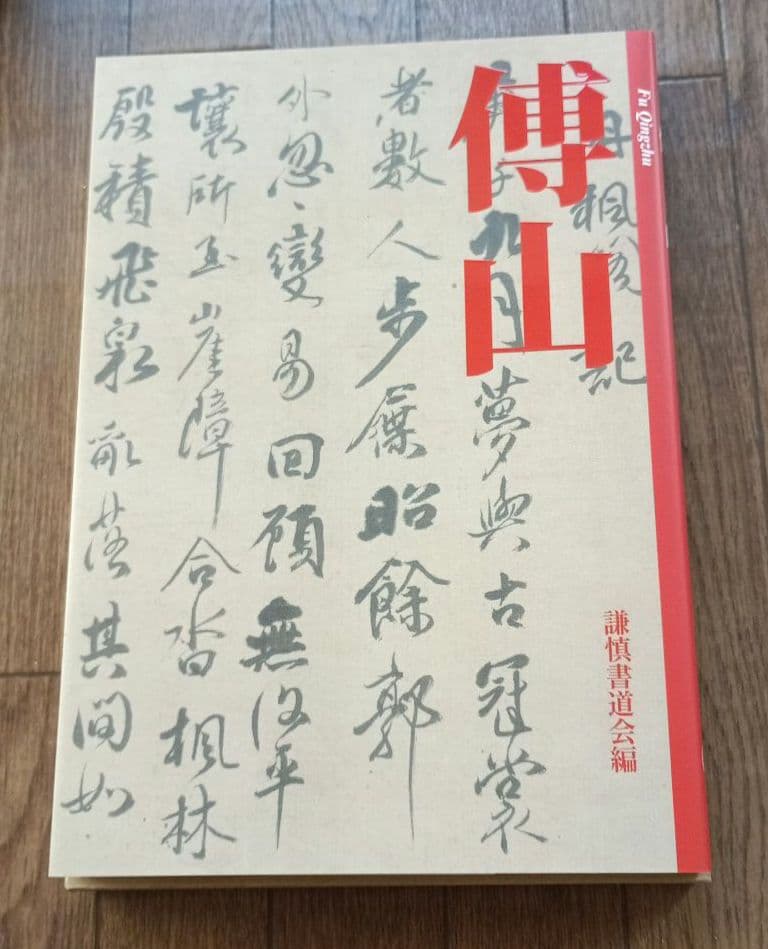 傅山
Fu Qingzhu
謙慎書道会編
丹楓閣記
庚子九月夢與古冠裳
者數人步屧昭餘郭
外忽〻變易回顧無復平
壤所至山崖障合沓楓林
殷積飛泉亂落其間如